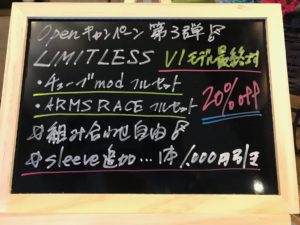 Openキャンペーン第3弾
LIMITLESS V1モデル最終
・チューブmodフルセット
・ARMS RACE フルセット
20%off
組み合わせ自由
sleeve追加…1本1,000円引き